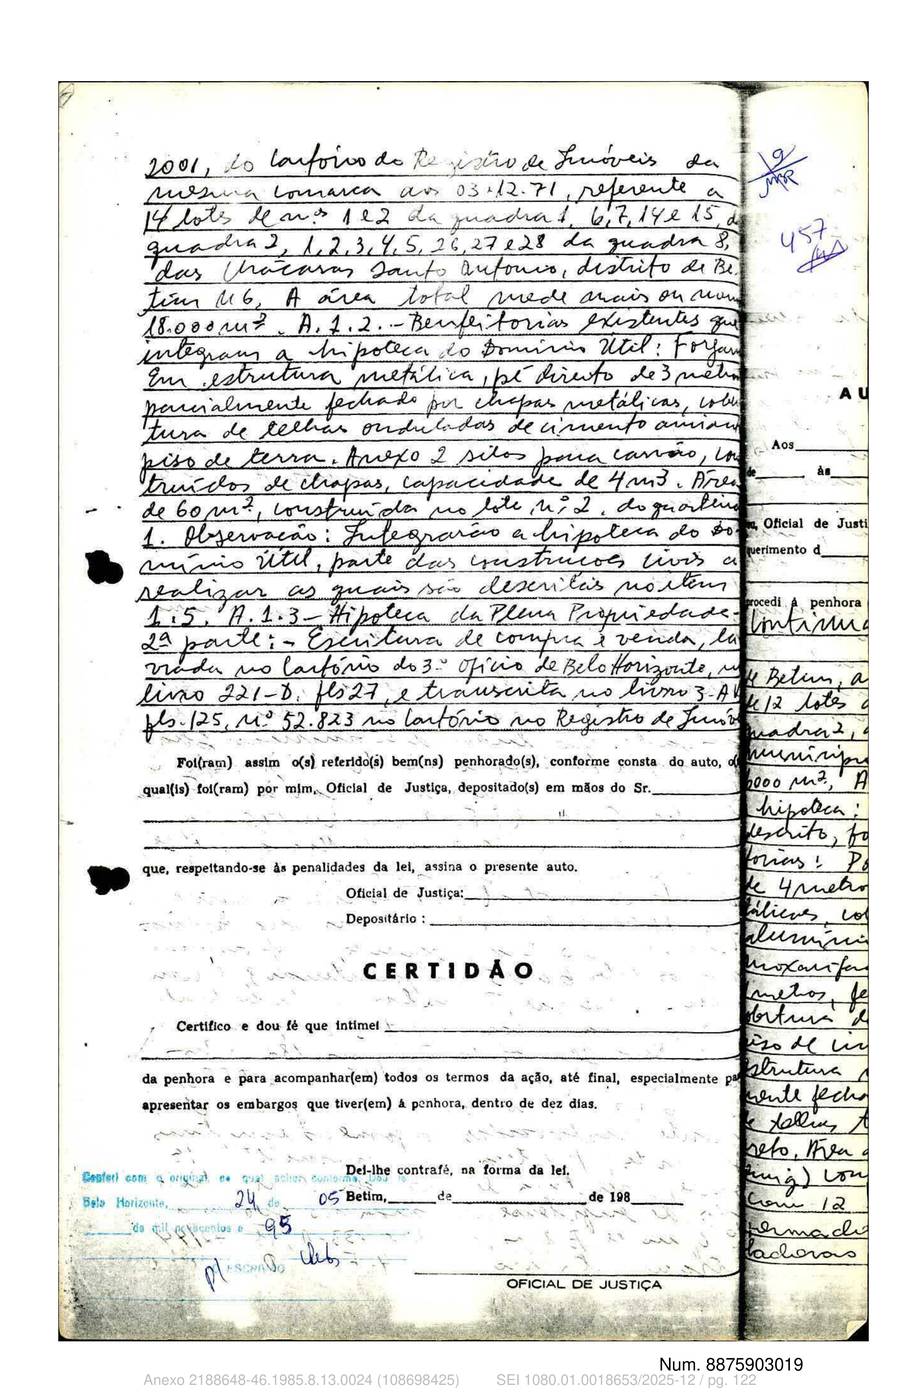 2001, do Cartório do Registro de Imóveis da
mesma comarca aos 03.12.71, referente a
14 lotes de nºs 1 e 2 da quadra 1, 6, 7, 14 e 15, d
quadra 2, 1, 2, 3, 4, 5, 26, 27 e 28 da quadra 8,
das Chácaras Santo Antonio, distrito de Be-
tim MG, A área total mede mais ou men
18.000 m². A.1.2. - Benfeitorias existentes que
integram a hipoteca do Domínio Útil: Forjam
Em estrutura metálica, pé direito de 3 metro
parcialmente fechado por chapas metálicas, cobe
tura de telhas onduladas de cimento amian
piso de terra. Anexo 2 silos para carvão, con
truídos de chapas, capacidade de 4 m3. Área
de 60 m², construída no lote nº 2. do quarteirã
1. Observação: Integrarão a hipoteca do Do
mínio Útil, parte das construcoes civis a
realizar as quais são descritas no item
1.5. A.1.3 - Hipoteca da Plena Propriedade -
2ª parte: - Escritura de compra e venda, la
vrada no Cartório do 3º Ofício de Belo Horizonte, n
livro 221-D. fls 27, e transcrita no livro 3-A
fls. 125, nº 52.823 no Cartório no Registro de Imóv
Foi(ram) assim o(s) referido(s) bem(ns) penhorado(s), conforme consta do auto, o(
qual(is) foi(ram) por mim, Oficial de Justiça, depositado(s) em mãos do Sr.
que, respeitando-se às penalidades da lei, assina o presente auto.
Oficial de Justiça:
Depositário :
CERTIDÃO
Certifico e dou fé que intimei
da penhora e para acompanhar(em) todos os termos da ação, até final, especialmente pa
apresentar os embargos que tiver(em) à penhora, dentro de dez dias.
Dei-lhe contrafé, na forma da lei.
Betim, de de 198
OFICIAL DE JUSTIÇA
Conferi com o original, ao qual achei conforme. Dou fé
Belo Horizonte, 24 de 05
de mil novecentos e 95
p/ ESCRIVÃO
457
AU
Aos
de , às
Oficial de Justi
querimento d
procedi à penhora
Continua
de Betim, a
de 12 lotes
quadra 2,
município
6000 m², A
hipoteca:
descrito, fo
torias: Po
de 4 metro
tálicas, co
alumínio
moxarifa
metros, fe
obertura d
iso de ci
strutura
mente fecha
e telhas
reto, Área
com 12
Num. 8875903019
Anexo 2188648-46.1985.8.13.0024 (108698425) SEI 1080.01.0018653/2025-12 / pg. 122